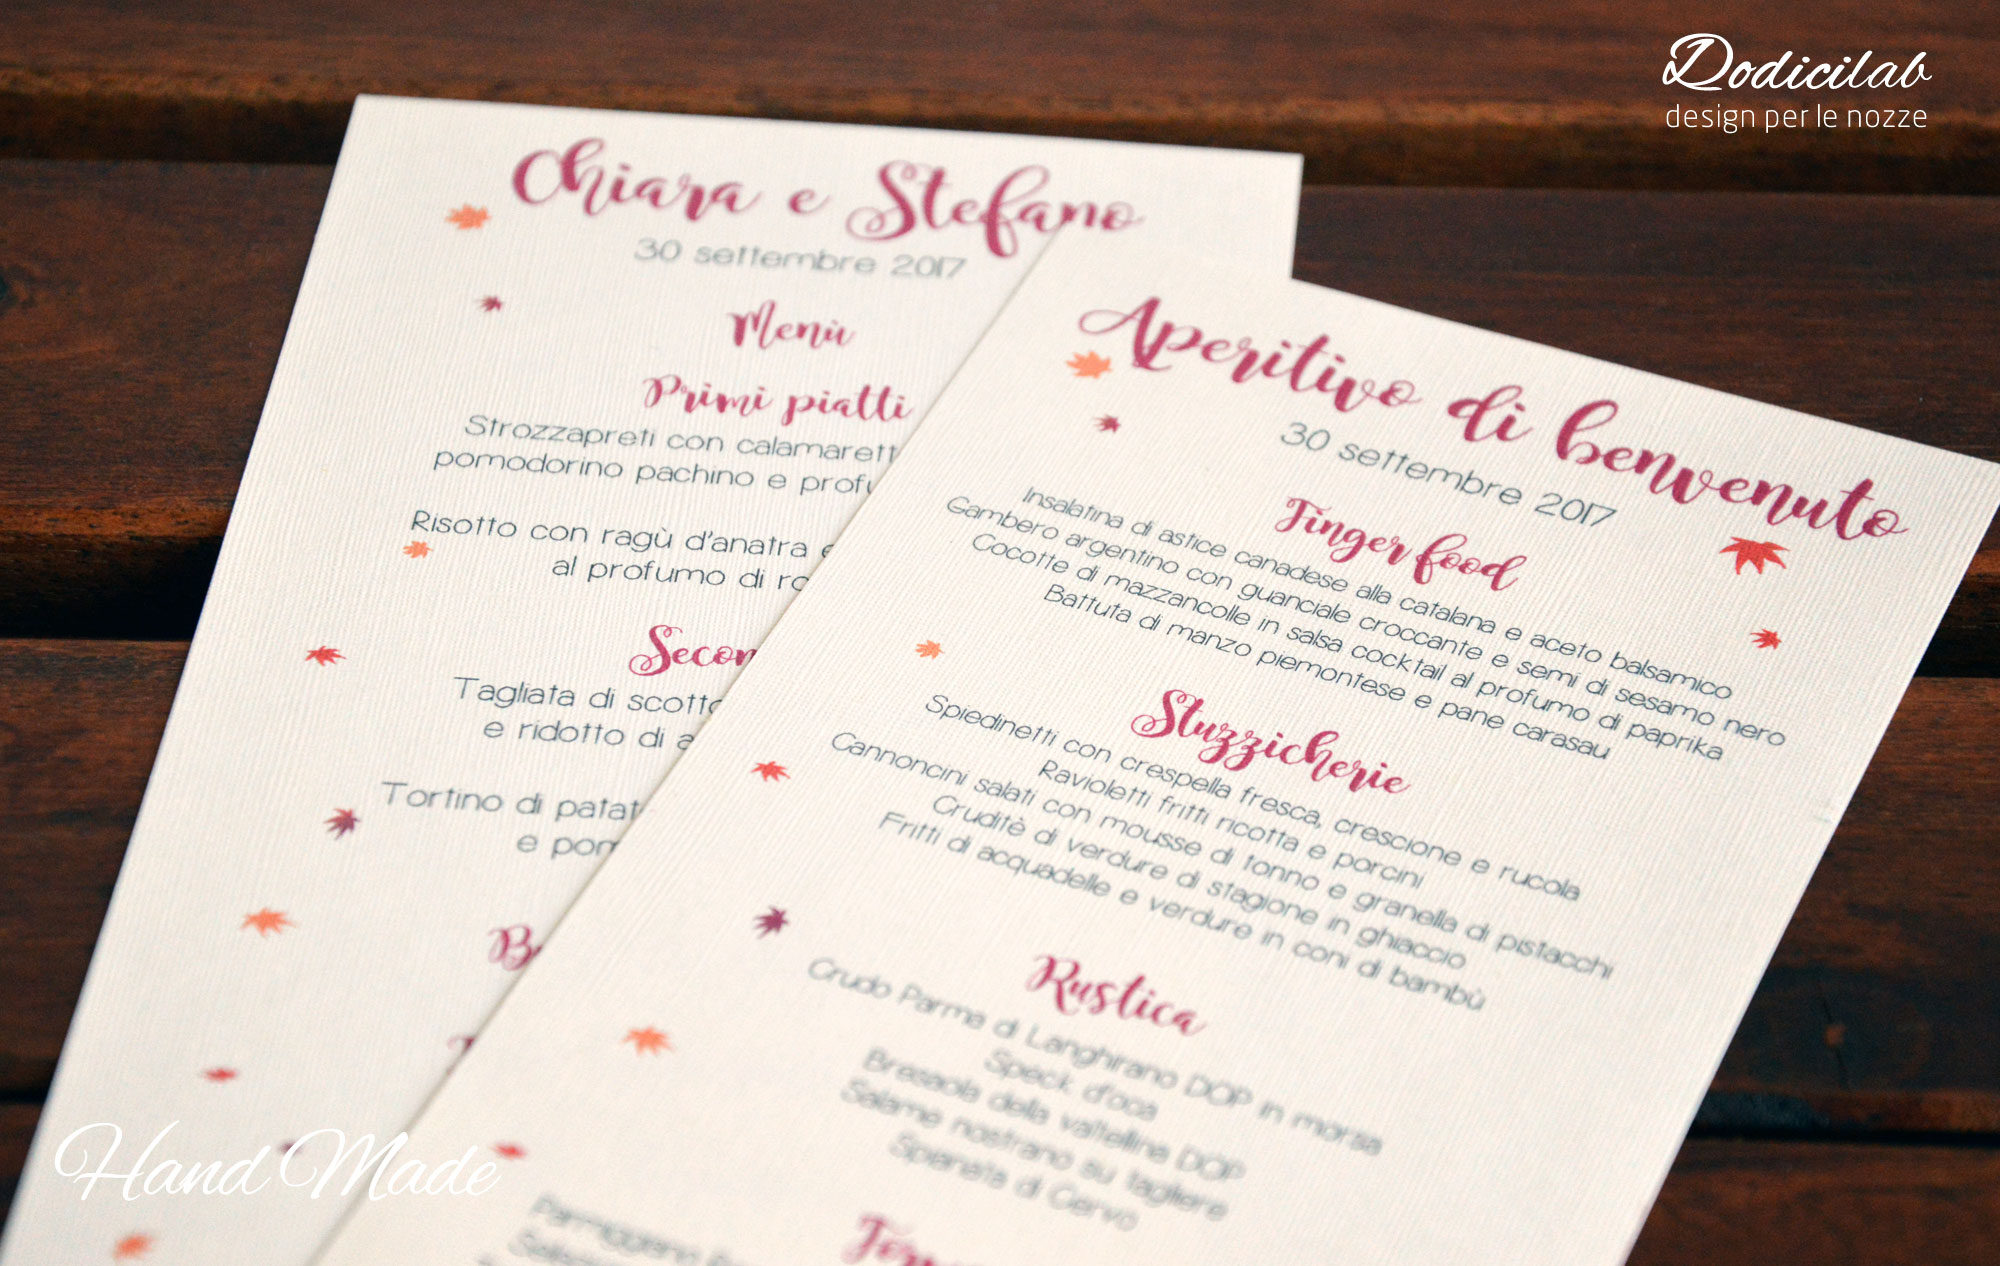 Dodicilab
design per le nozze
Chiara e Stefano
30 settembre 2017
Menù
Primi piatti
Strozzapreti con calamarett
pomodorino pachino e prof
Risotto con ragù d'anatra e
al profumo di ro
Secon
Tagliata di scotto
e ridotto di a
Tortino di patat
e pom
Aperitivo di benvenuto
30 settembre 2017
Finger food
Insalatina di astice canadese alla catalana e aceto balsamico
Gambero argentino con guanciale croccante e semi di sesamo nero
Cocotte di mazzancolle in salsa cocktail al profumo di paprika
Battuta di manzo piemontese e pane carasau
Stuzzicherie
Spiedinetti con crespella fresca, crescione e rucola
Ravioletti fritti ricotta e porcini
Cannoncini salati con mousse di tonno e granella di pistacchi
Cruditè di verdure di stagione in ghiaccio
Fritti di acquadelle e verdure in coni di bambù
Rustica
Crudo Parma di Langhirano DOP in morsa
Speck d'oca
Bresaola della valtellina DOP
Salame nostrano su tagliere
Spianata di Cervo
Parmiggiano
Hand Made